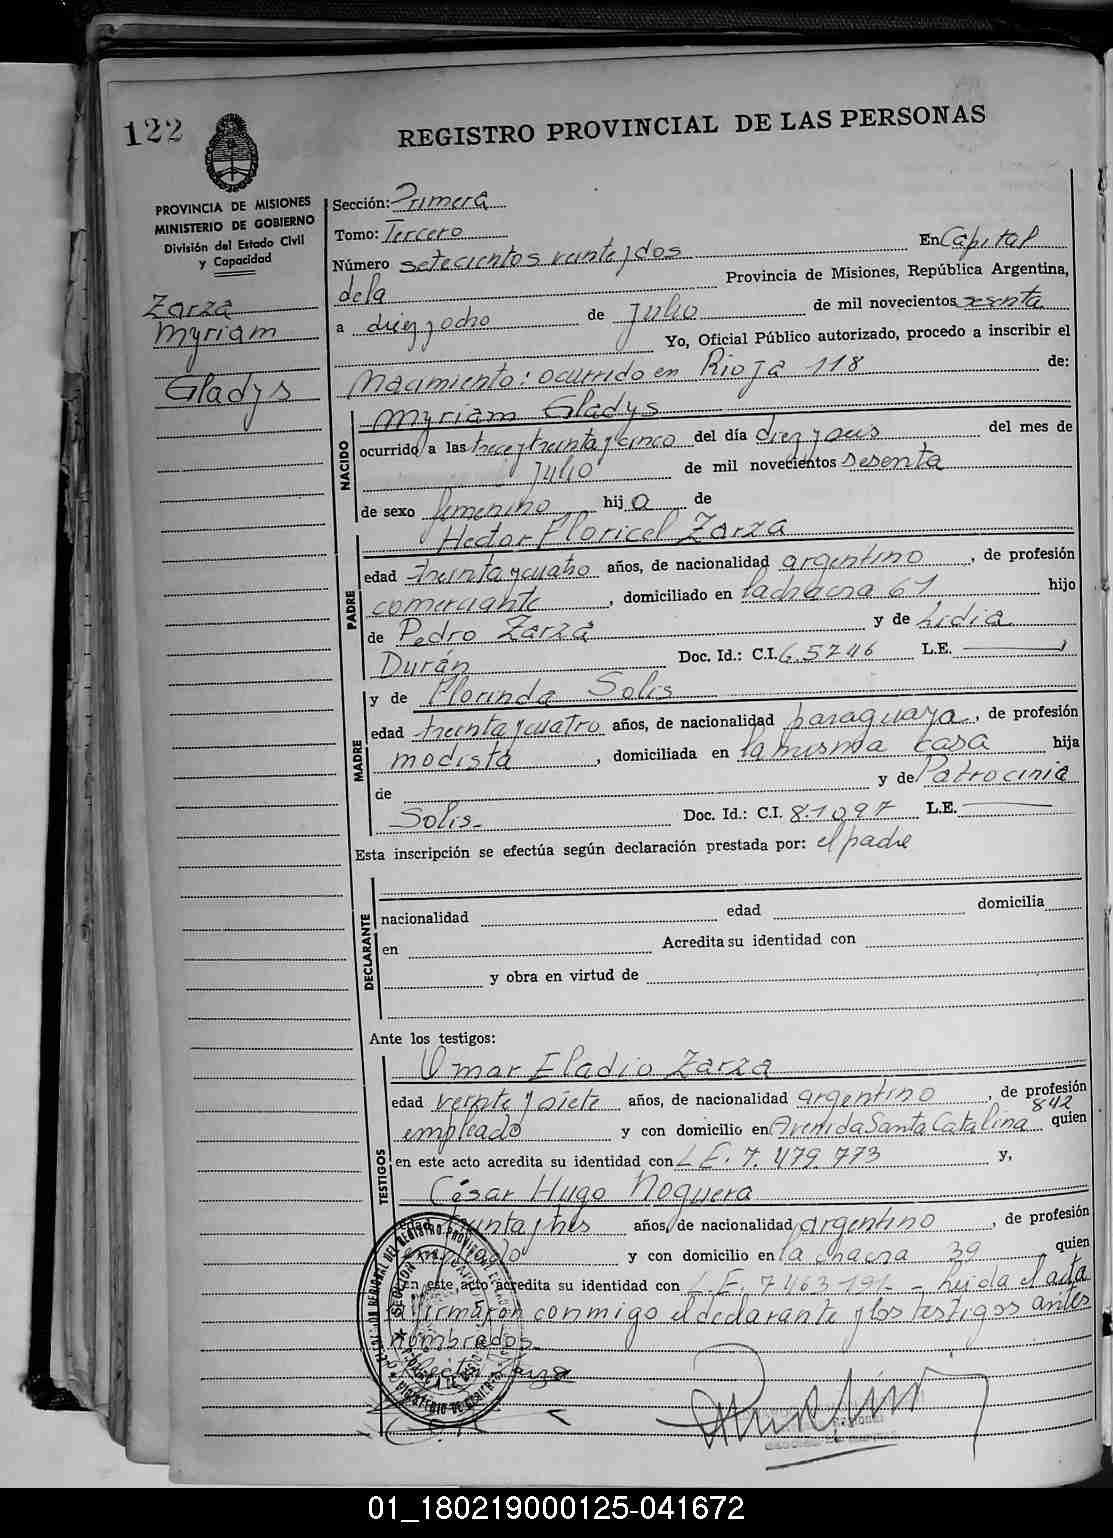 122
REGISTRO PROVINCIAL DE LAS PERSONAS
PROVINCIA DE MISIONES
MINISTERIO DE GOBIERNO
División del Estado Civil
y Capacidad
Zarza
Myriam
Gladys
Sección: Primera
Tomo: Tercero
Número setecientos veinte y dos En Capital
dela Provincia de Misiones, República Argentina,
a diez y ocho de Julio de mil novecientos sesenta
Yo, Oficial Público autorizado, procedo a inscribir el
Nacimiento: ocurrido en Rioja 118 de:
NACIDO
Myriam Gladys
ocurrido a las trece y treinta y cinco del día diez y seis del mes de
Julio de mil novecientos sesenta
de sexo femenino hij a de
PADRE
Hector Floricel Zarza
edad treinta y cuatro años, de nacionalidad argentino, de profesión
comerciante, domiciliado en la chacra 61 hijo
de Pedro Zarza y de Lidia
Durán Doc. Id.: C.I. 6.5746 L.E.
y de Florinda Solis
MADRE
edad treinta y cuatro años, de nacionalidad paraguaya, de profesión
modista, domiciliada en la misma casa hija
de y de Patrocinia
Solis- Doc. Id.: C.I. 81097 L.E.
Esta inscripción se efectúa según declaración prestada por: el padre
DECLARANTE
nacionalidad edad domicilia
en Acredita su identidad con
y obra en virtud de
Ante los testigos:
TESTIGOS
Omar Eladio Zarza
edad veinte y siete años, de nacionalidad argentino, de profesión
empleado y con domicilio en Avenida Santa Catalina 842 quien
en este acto acredita su identidad con L.E. 7.479.773 y,
César Hugo Noguera
edad treinta y tres años, de nacionalidad argentino, de profesión
y con domicilio en la chacra 39 quien
en este acto acredita su identidad con L.E. 7463191- leida el acta
firmaron conmigo el declarante y los testigos antes
nombrados-
Zarza
01_180219000125-041672